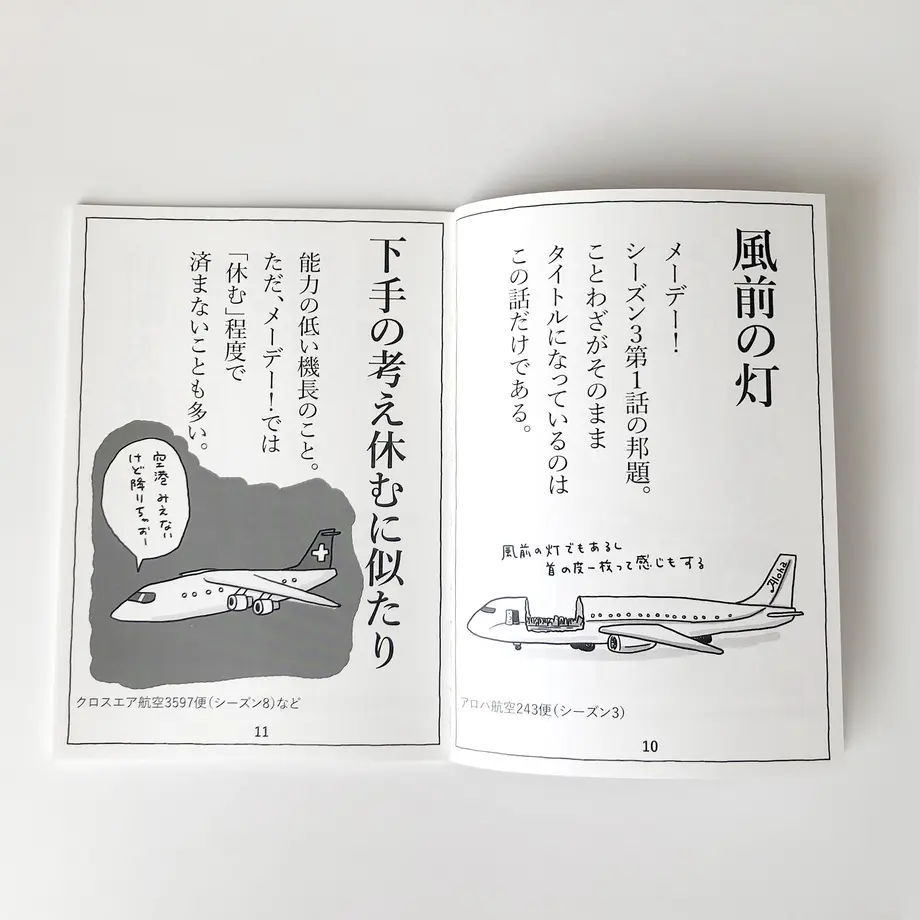 風前の灯
メーデー！
シーズン3第1話の邦題。
ことわざがそのまま
タイトルになっているのは
この話だけである。
風前の灯でもあるし
首の皮一枚って感じもする
Aloha
アロハ航空243便（シーズン3）
10
下手の考え休むに似たり
能力の低い機長のこと。
ただ、メーデー！では
「休む」程度で
済まないことも多い。
空港みえない
けど降りちゃおー
クロスエア航空3597便（シーズン8）など
11